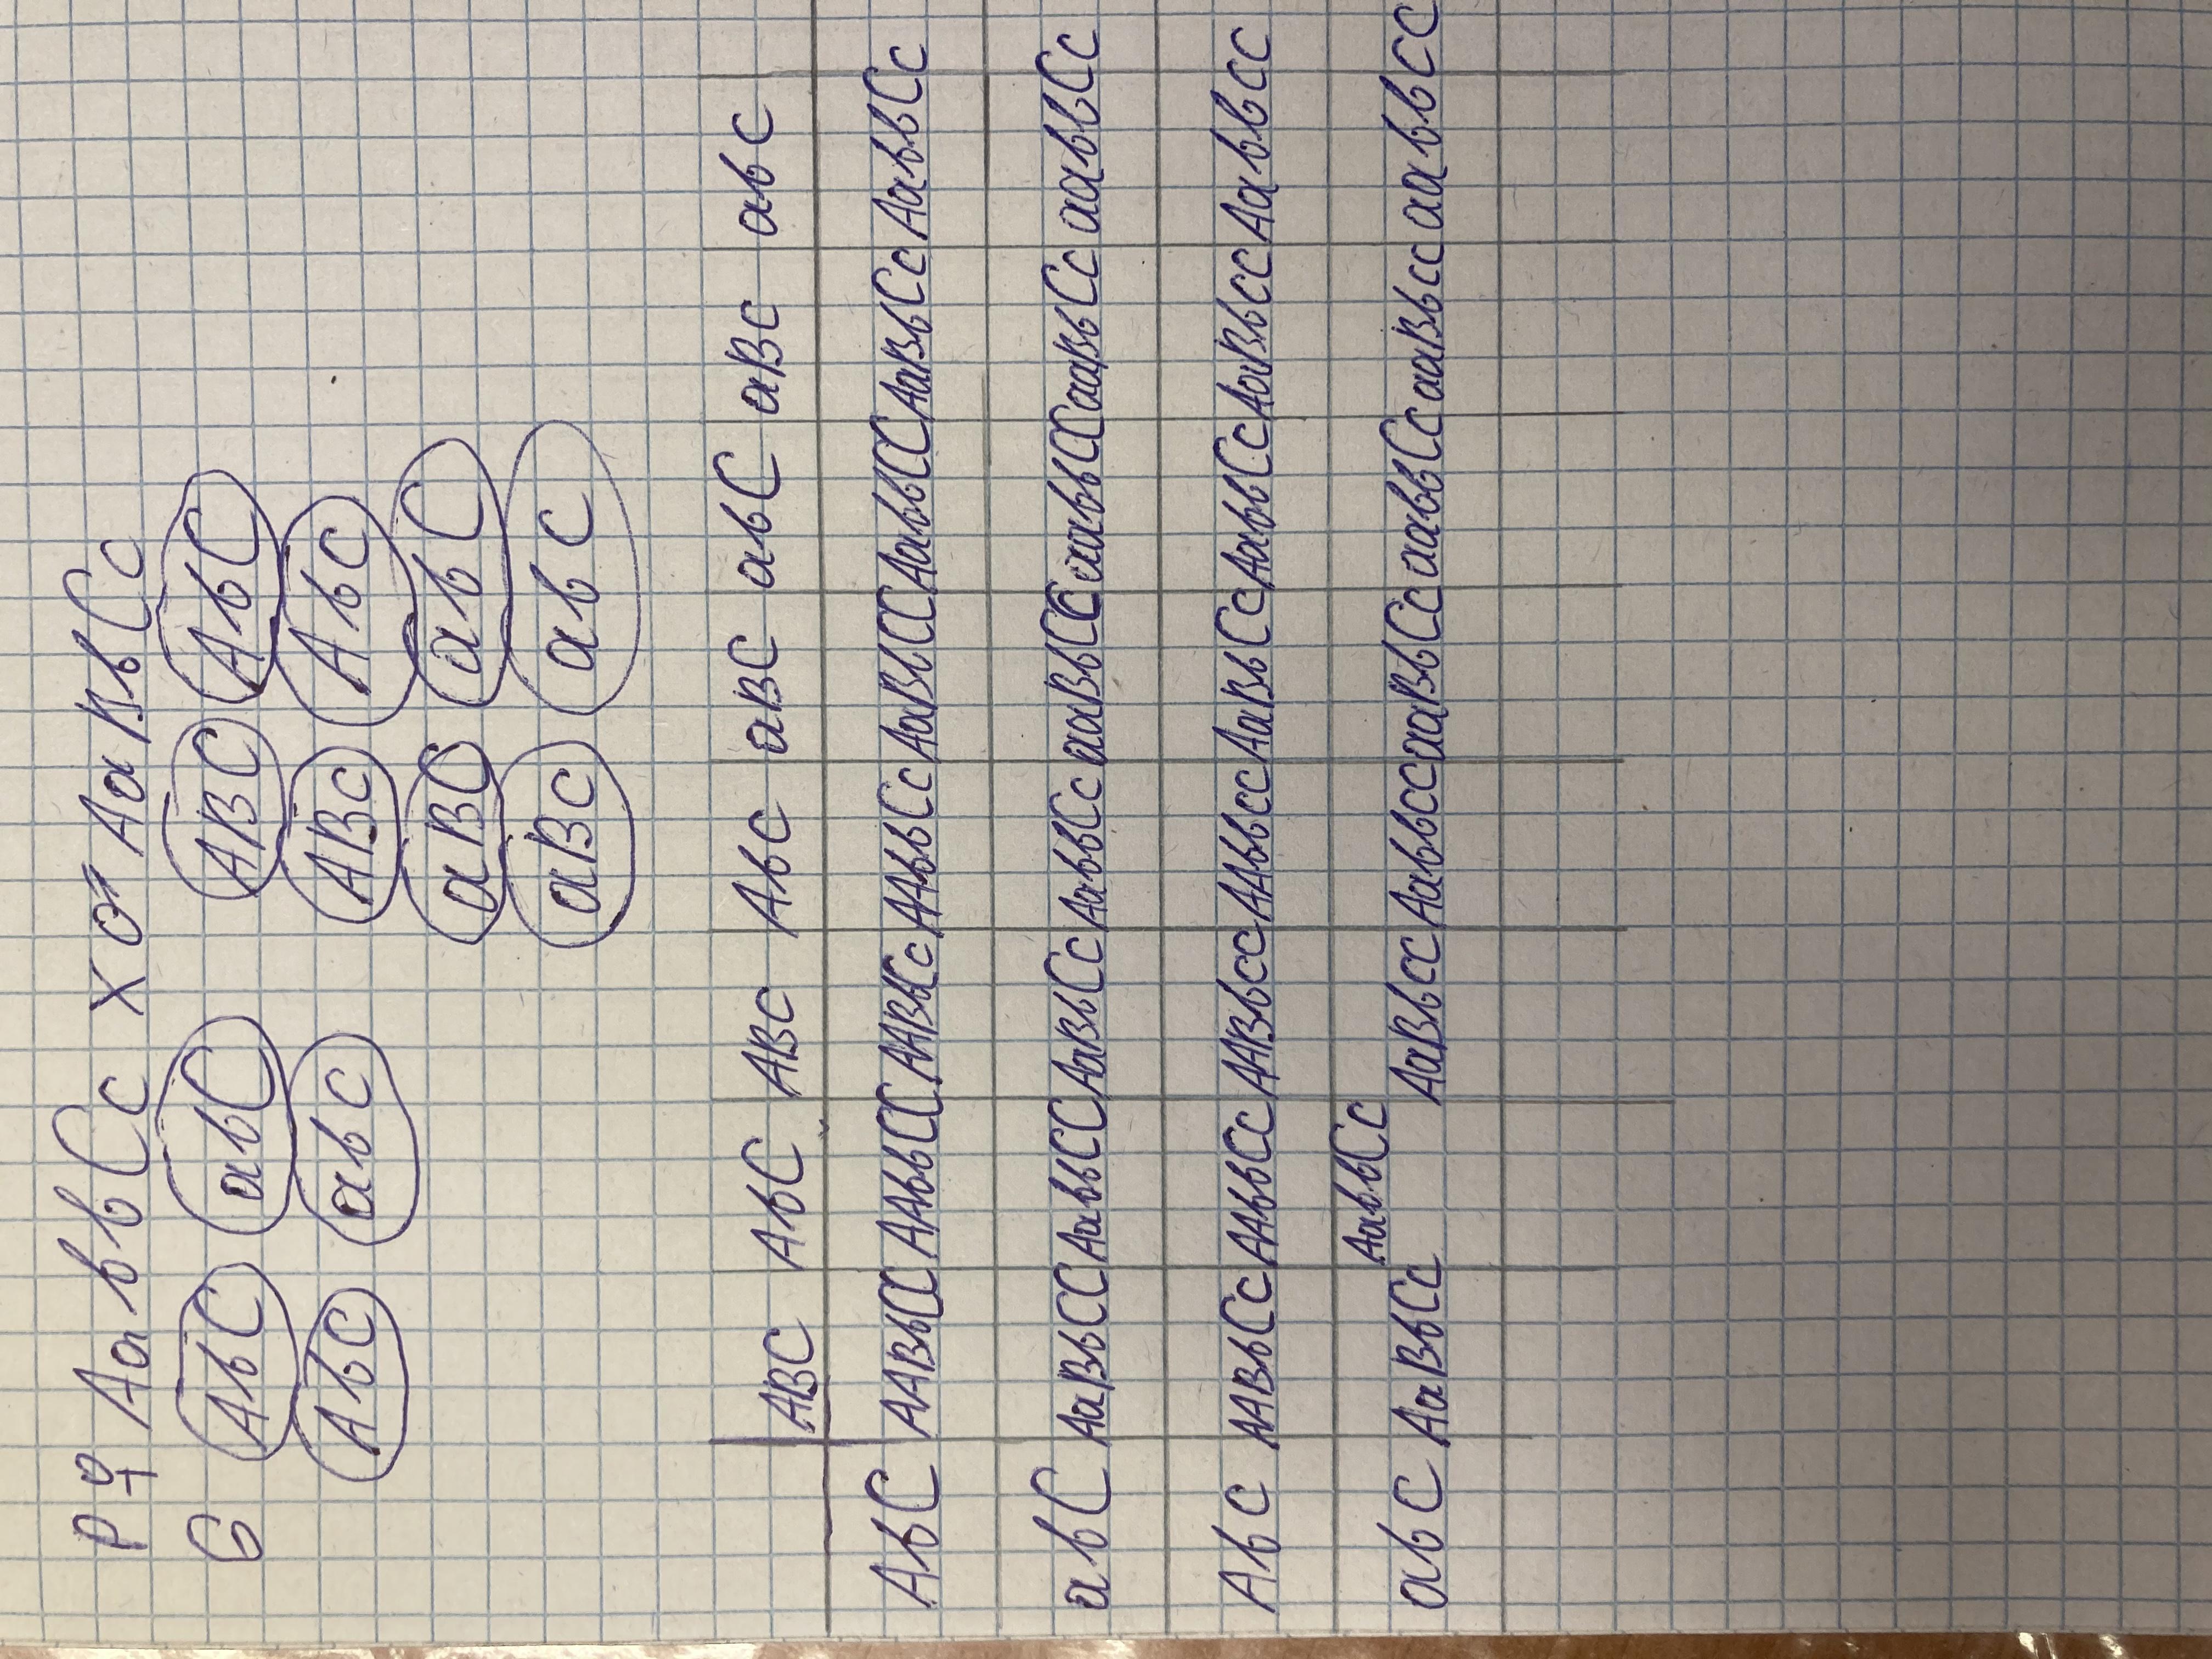 P ♀ AabbCc X ♂ AaBbCc
G AbC abC ABC AbC
Abc abc ABc Abc
aBC abC
aBc abc
ABC AbC ABc Abc aBC abC aBc abc
AbC AABbCC AAbbCC AABbCc AAbbCc AaBbCC AabbCC AaBbCc AabbCc
abC AaBbCC AabbCC AaBbCc AabbCc aaBbCC aabbCC aaBbCc aabbCc
Abc AABbCc AAbbCc AABbcc AAbbcc AaBbCc AabbCc AaBbcc Aabbcc
abc AaBbCc AabbCc AaBbcc Aabbcc aaBbCc aabbCc aaBbcc aabbcc